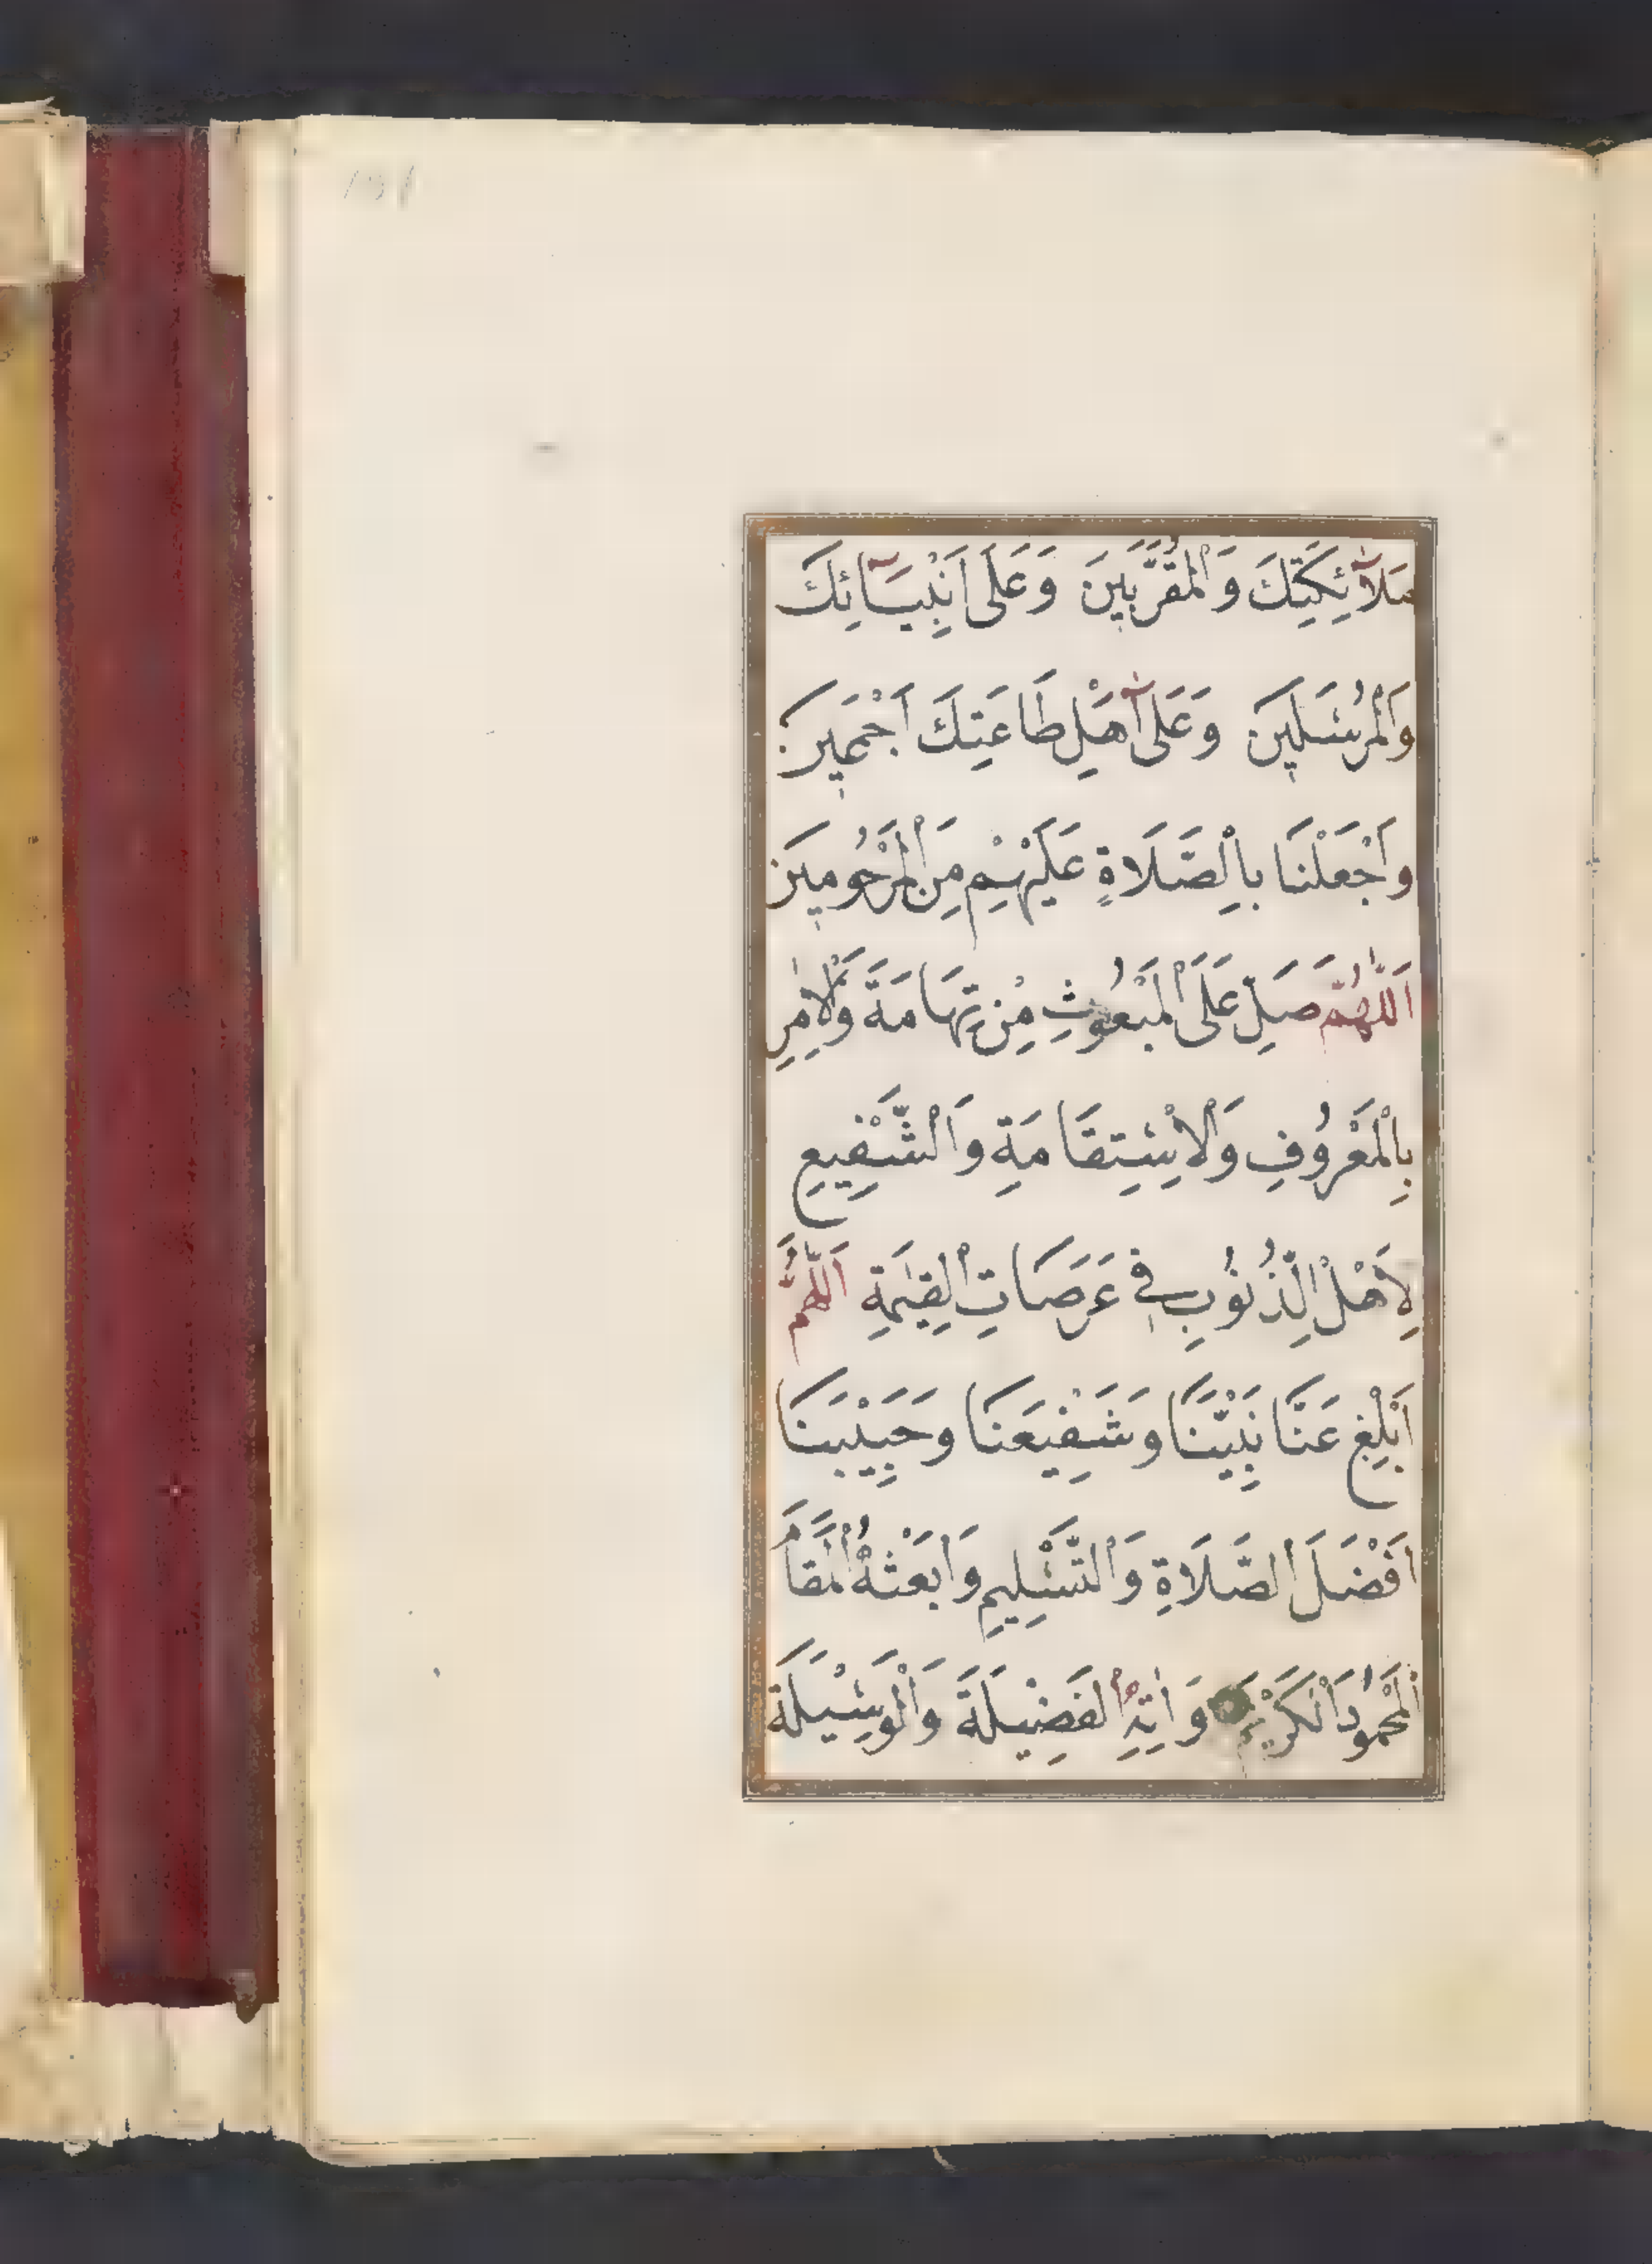 مَلآئِكَتِكَ وَالْمُقَرَّبِينَ وَعَلَى اَنْبِيَآئِكَ
وَالْمُرْسَلِينَ وَعَلَى آهْلِ طَاعَتِكَ اَجْمَعِينَ
وَاَجْعَلْنَا بِالْصَّلَاةِ عَلَيْهِمْ مِنَ الْمَرْحُومِينَ
اَللّٰهُمَّ صَلِّ عَلَى الْمَبْعُوثِ مِنْ تِهَامَةَ وَالْاٰمِرِ
بِالْمَعْرُوفِ وَالْاِسْتِقَامَةِ وَالْشَّفِيعِ
لِاَهْلِ الْذُنُوبِ فِي عَرَصَاتِ الْقِيٰمَةِ اَللّٰهُمَّ
اَبْلِغْ عَنَّا نَبِيَّنَا وَشَفِيعَنَا وَحَبِيْبَنَا
اَفْضَلَ الصَّلَاةِ وَالْتَّسْلِيمِ وَابْعَثْهُ الْمَقَامَ
الْمَحْمُودَ اَلْكَرِيْمَ وَاٰتِهِ الْفَضِيْلَةَ وَالْوَسِيْلَةَ